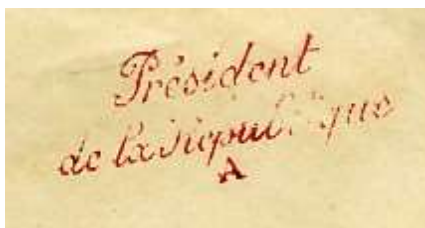 Président
de la République
A